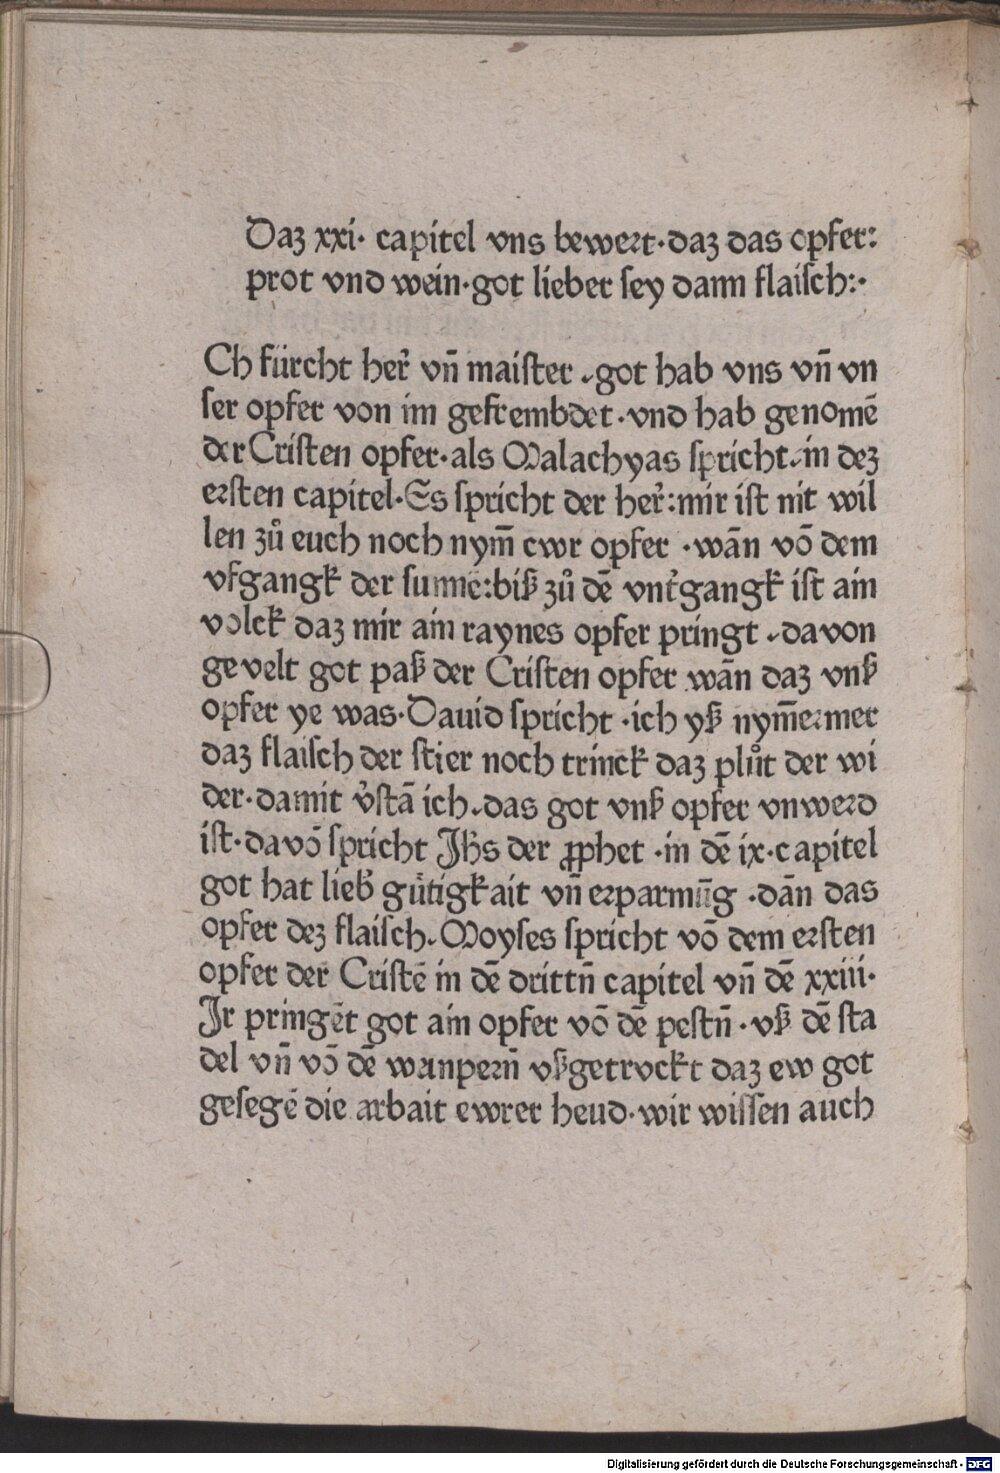 Daz xxi· capitel vns bewert·daz das opfer:
prot vnd wein·got lieber sey dann flaisch:·
Ch fürcht her̃ vñ maister ·got hab vns vñ vn
ser opfer von im gefrembdet·vnd hab genomē
der Cristen opfer·als Malachyas spricht·in dez
ersten capitel·Es spricht der her̃:mir ist nit wil
len zů euch noch nym̄ ewr opfer ·wān vō dem
vfgangk der sunne:biß zů dē vnt̃gangk ist ain
volck daz mir ain raynes opfer pringt ·davon
gevelt got paß der Cristen opfer wān daz vnß
opfer ye was·Dauid spricht ·ich yß nym̄ermer
daz flaisch der stier noch trinck daz plůt der wi
der·damit v̓stā ich·das got vnß opfer vnwerd
ist·davō spricht Jhs̄ der ꝓphet ·in dē ix·capitel
got hat lieb̓ gůtigkait vñ erparmūg ·dān das
opfer dez flaisch·Moyses spricht vō dem ersten
opfer der Cristē in dē drittñ capitel vñ dē xxiii·
Jr pringēt got ain opfer vō dē pestñ ·vß dē sta
del vñ vō dē wanperñ vßgetrvckt daz ew got
gesegē die arbait ewrer hend·wir wissen auch
Digitalisierung gefördert durch die Deutsche Forschungsgemeinschaft - DFG